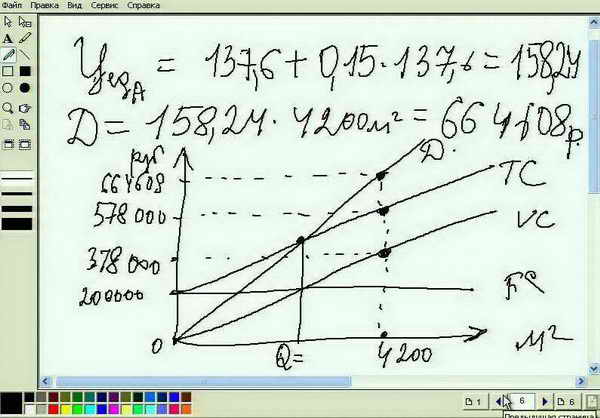 Файл Правка Вид Сервис Справка
Цед A = 137,6 + 0,15 · 137,6 = 158,24
Д = 158,24 · 4200 м² = 664608 р.
руб
Д.
664608
TC
578 000
VC
378 000
200000
FC
0
Q =
4200
М²
1
6
6
Предыдущая страница